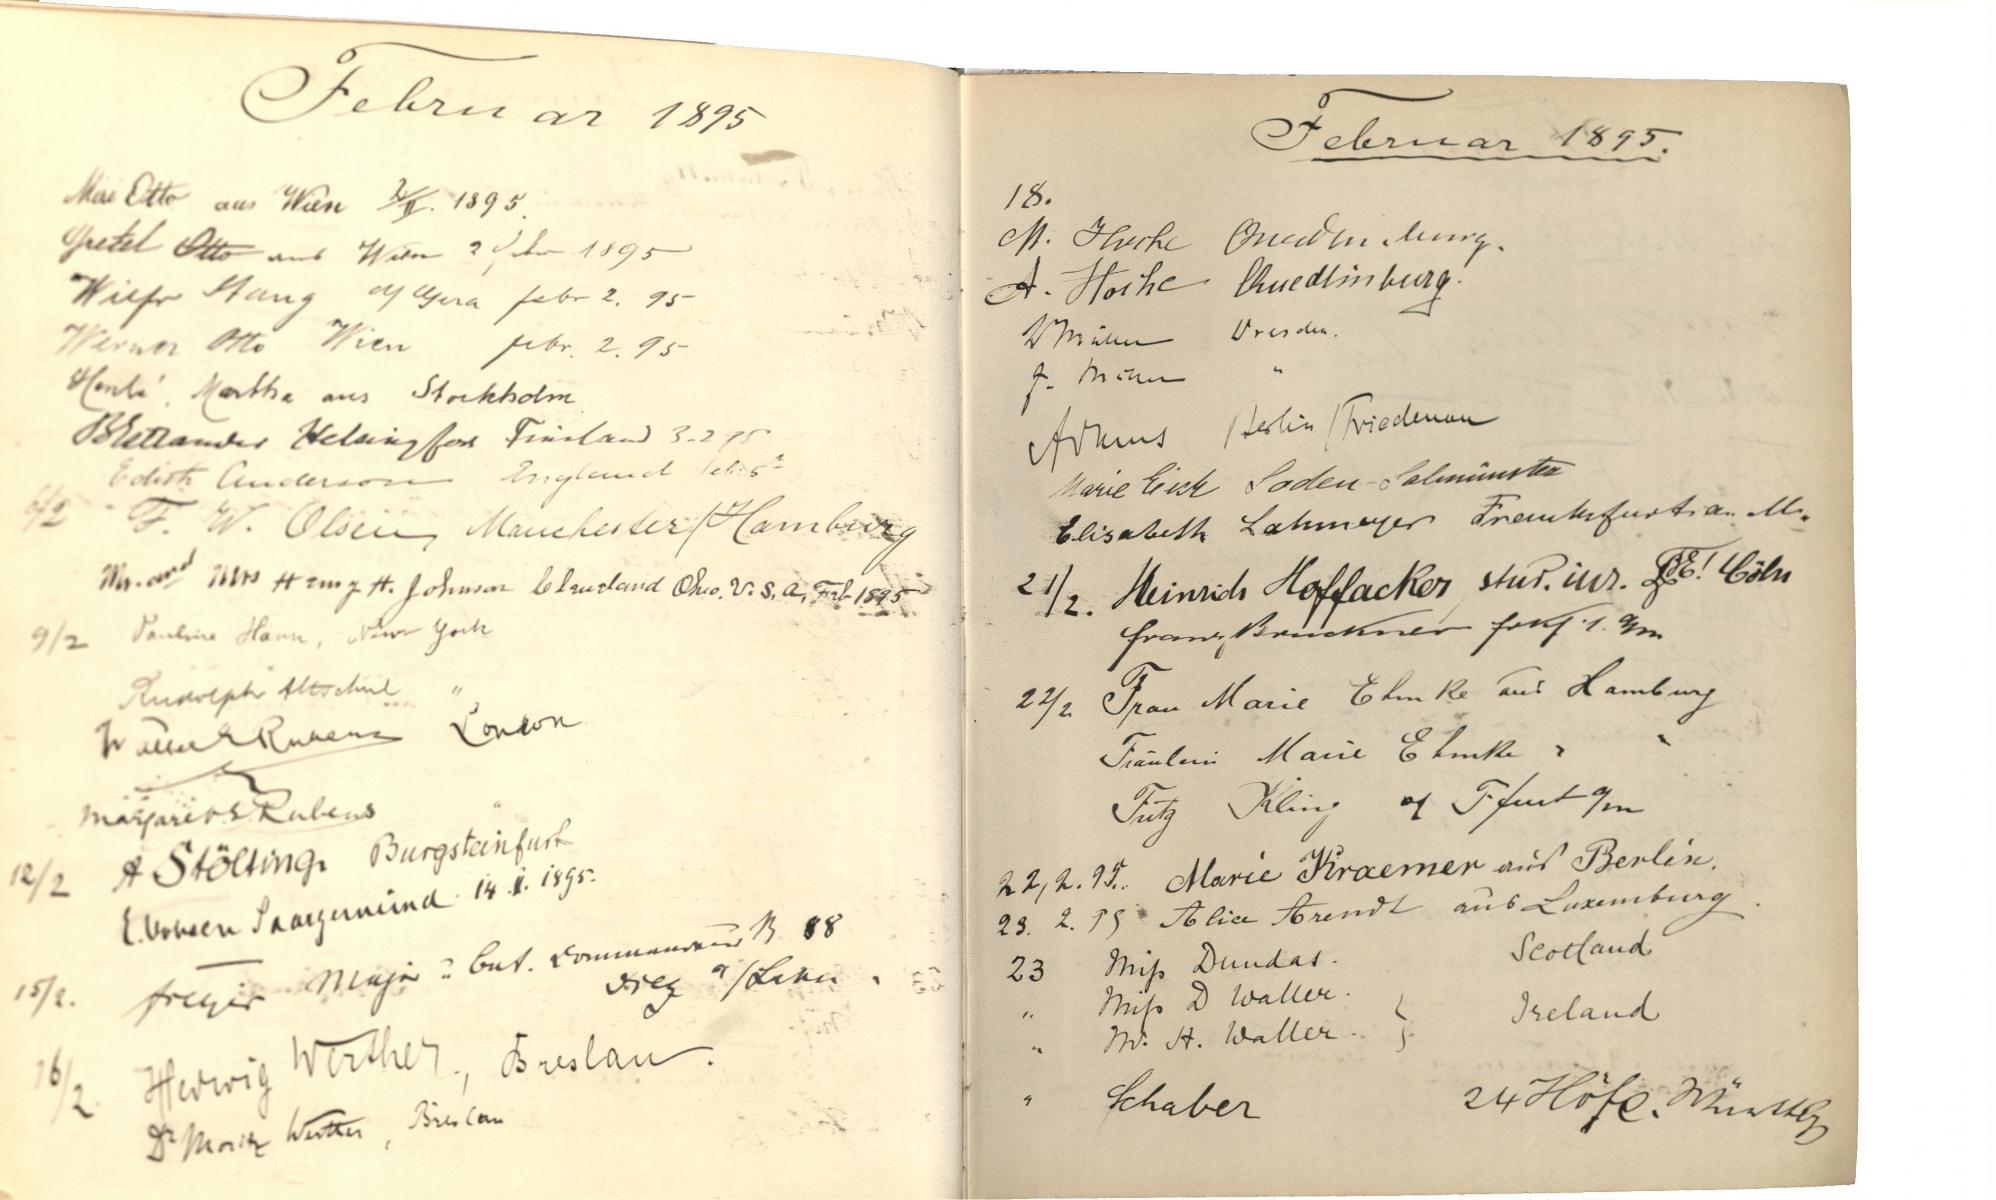 Februar 1895
Otto aus Wien 2/II. 1895.
Gretel Otto aus Wien 2 Febr 1895
Stang a/ Gera febr 2. 95
Werner Otto Wien febr. 2. 95
Martha aus Stockholm
Helsingfors Finland 3-2 95
Edith Anderson England feb. 5
6/2 F. W. Olsen, Manchester/Hamburg
Mr. and Mrs Henry H. Johnson Cleveland Ohio. U. S. A. Feb 1895
9/2 Pauline Hann, New York
Rudolph Altschul "
Walter Rubens London
Margarete Rubens "
12/2 A Stölting. Burgsteinfurt
E. Saargemünd. 14. II. 1895.
15/2. Major u. Bat. Commandeur 88
Diez a/Lahn.
16/2 Hedwig Werther, Breslau.
Dr Moritz Werther, Breslau
Februar 1895.
18.
M. Hoche Quedlinburg.
A. Hoche Quedlinburg.
Dresden.
F. "
Berlin/Friedenau
Marie Eick Soden-Salmünster
Elisabeth Lahmeyer Frankfurt a. M.
21/2. Heinrich Hoffacker, stud. iur. Cöln
Franz Bruckner Frkf. a/m
22/2 Frau Marie Ehmke aus Hamburg
Fräulein Marie Ehmke " "
Fritz Kling a/ Ffurt a/m
22, 2. 95. Marie Kraemer aus Berlin.
23. 2. 95 Alice Arendt aus Luxemburg.
23 Miss Dundas. Scotland
" Miss D Waller.
" Mr. H. Waller. } Ireland
" Schaber 24 Höfe. Württbg